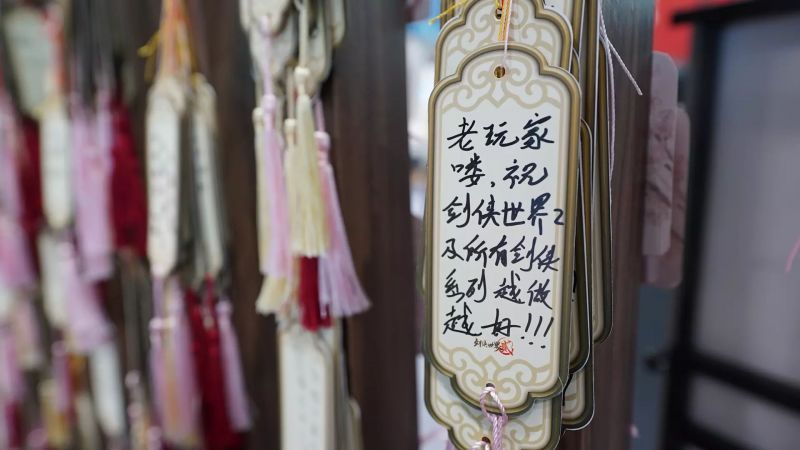 老玩家
喽，祝
剑侠世界2
及所有剑侠
系列越做
越好!!!
剑侠世界贰